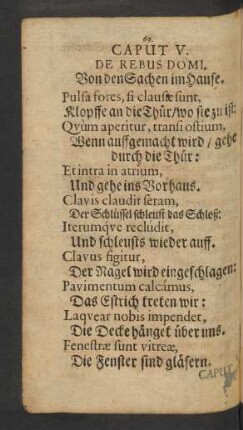 62.
CAPUT V.
DE REBUS DOMI.
Von den Sachen im Hause.
Pulsa fores, si clausæ sunt,
Klopffe an die Thür/wo sie zu ist:
Qvum aperitur, transi ostium,
Wenn auffgemacht wird / gehe
durch die Thür:
Et intra in atrium,
Und gehe ins Vorhaus.
Clavis claudit seram,
Der Schlüssel schleust das Schloß:
Iterumqve recludit,
Und schleusts wieder auff.
Clavus figitur,
Der Nagel wird eingeschlagen:
Pavimentum calcámus,
Das Estrich treten wir:
Laqvear nobis impendet,
Die Decke hänget über uns.
Fenestræ sunt vitreæ,
Die Fenster sind gläsern.
CAPUT